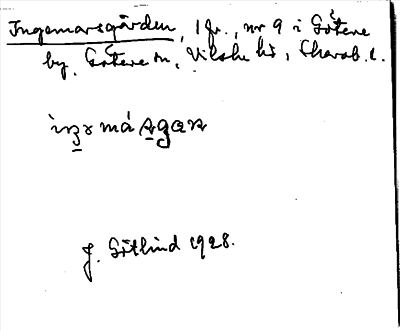 Ingemarsgården, 1 gd., nr 9 i Götene
by, Götene sn, Vilske hd, Skarab. l.
J. Götlind 1928.